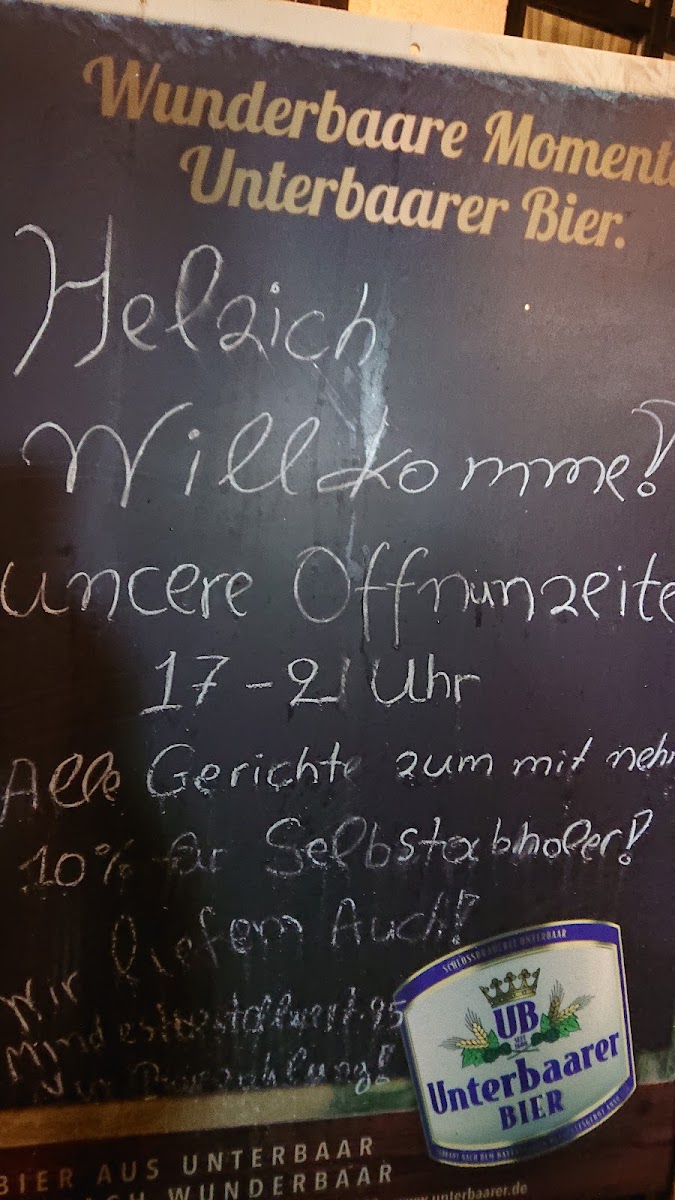 Wunderbaare Momente
Unterbaarer Bier.
Helzich
Willkomme!
uncere Offnunzeite
17-21 Uhr
Alle Gerichte zum mit nehm
10% für Selbstabholer!
Wir liefern Auch!
Mindestbestellwert. 95
Nur Barzahlung!
SCHLOSSBRAUEREI UNTERBAAR
UB
SEIT
Unterbaarer
BIER
BIER AUS UNTERBAAR
ACH WUNDERBAAR
www.unterbaarer.de